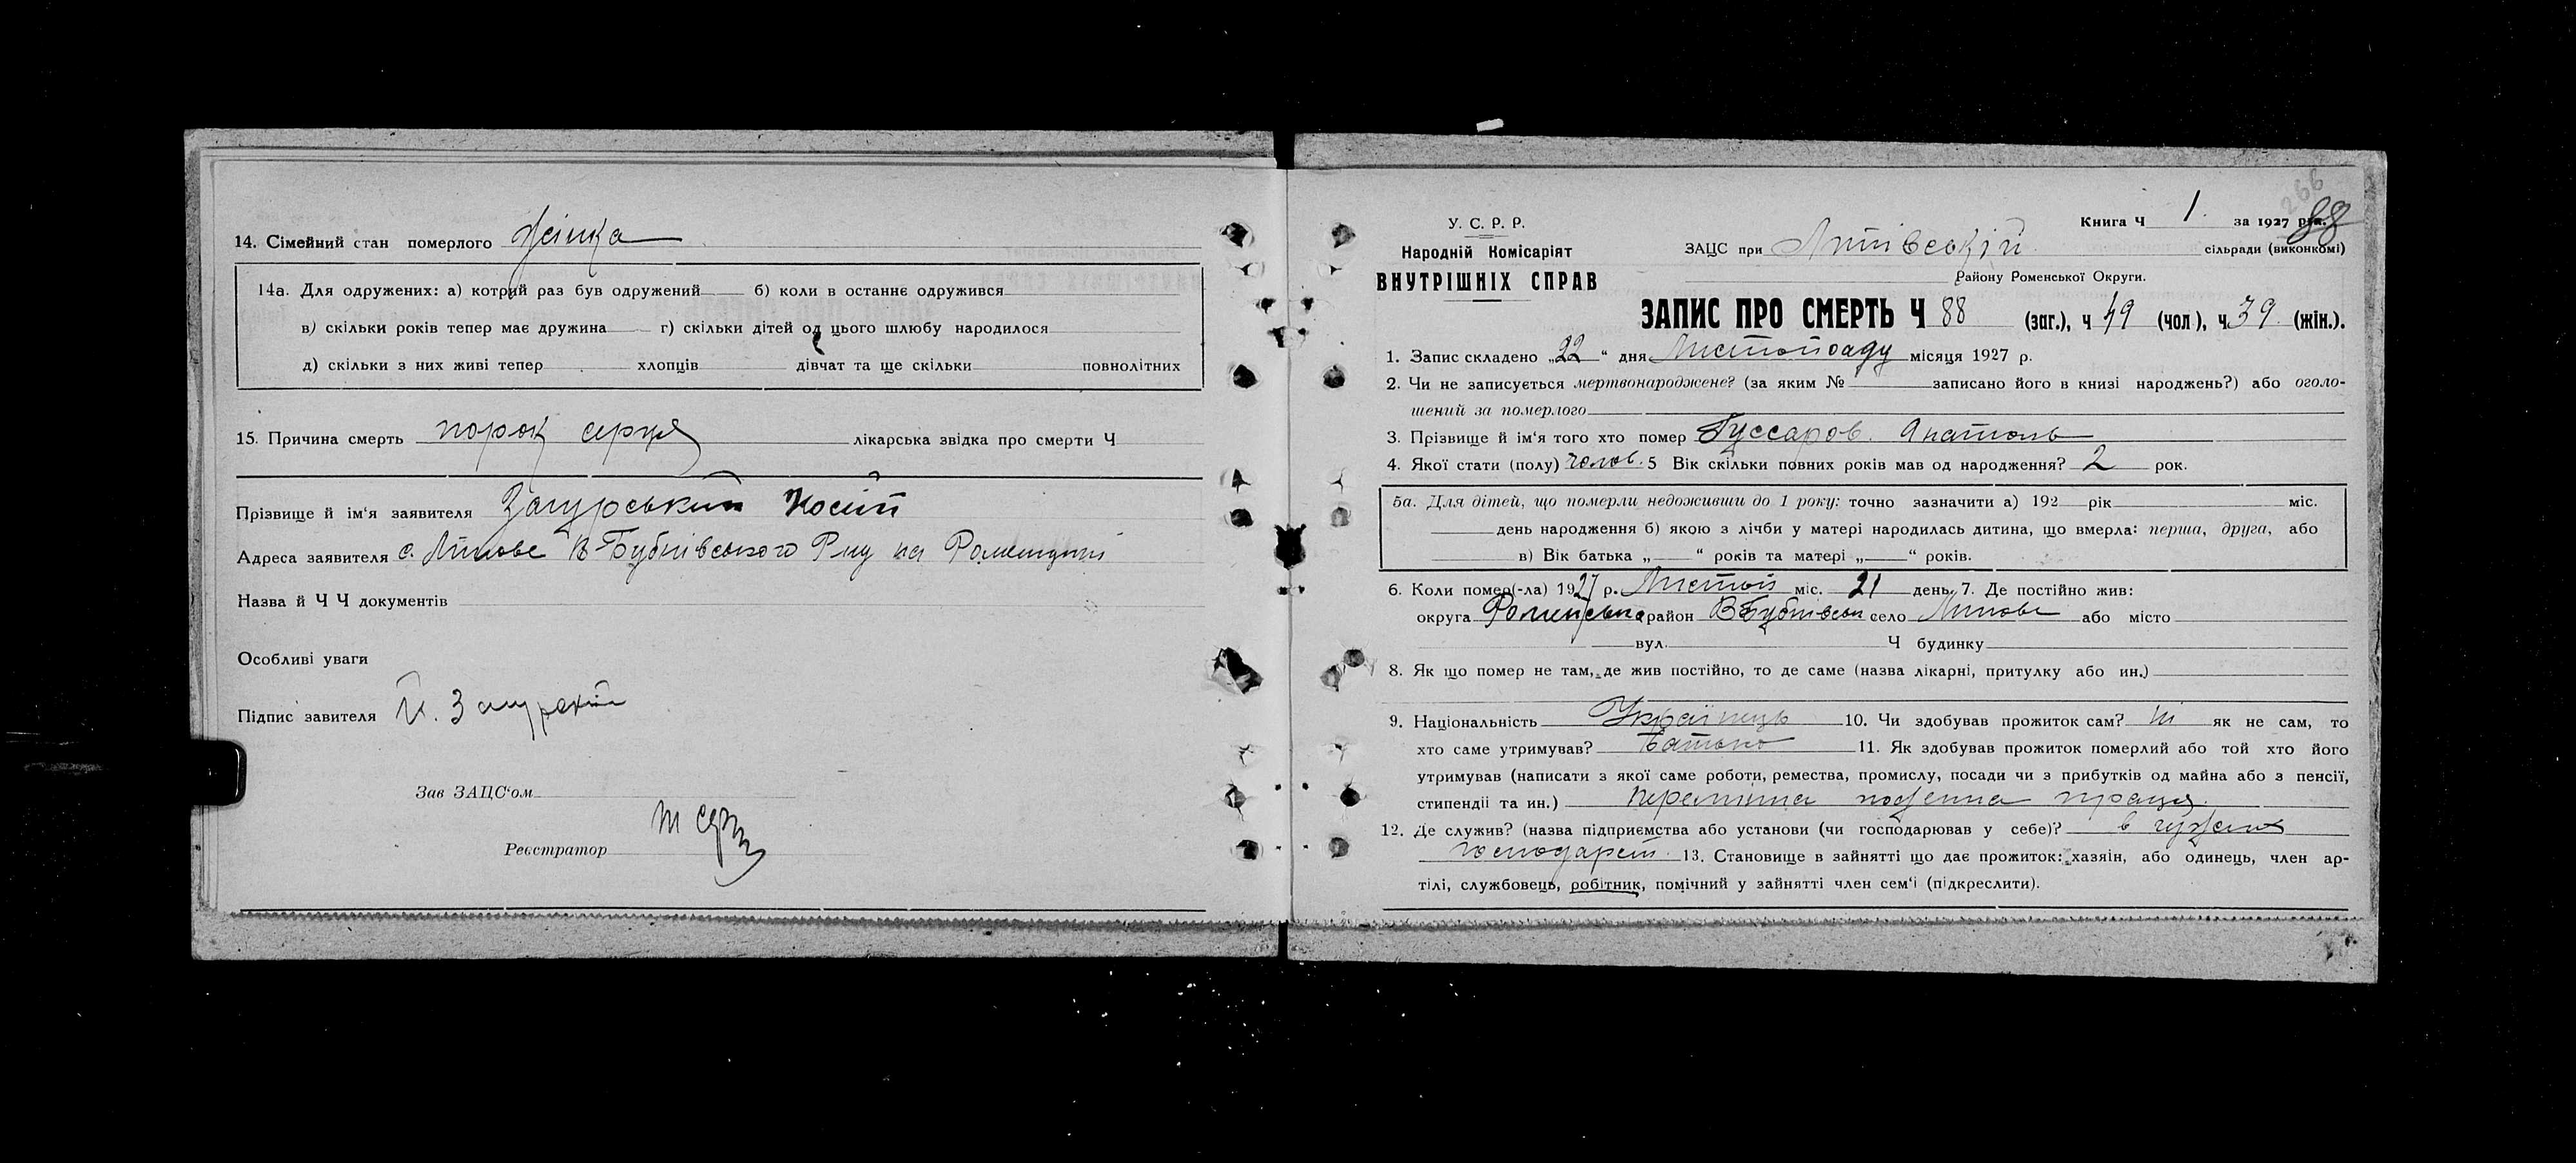 14. Сімейний стан померлого жінка
14а. Для одружених: а) котрий раз був одружений б) коли в останнє одружився
в) скільки років тепер має дружина г) скільки дітей од цього шлюбу народилося
д) скільки з них живі тепер хлопців дівчат та ще скільки повнолітних
15. Причина смерть порок серця лікарська звідка про смерти Ч
Прізвище й ім'я заявителя Загурський Йосип
Адреса заявителя с. Липове В-Бубнівського Р-ну на Роменщині
Назва й Ч Ч документів
Особливі уваги
Підпис завителя Й. Загурский
Зав ЗАЦС'ом
Реєстратор
266
У. С. Р. Р.
Книга Ч 1. за 1927 рік. 88
Народній Комісаріят
ЗАЦС при Липівській сільради (виконкомі)
ВНУТРІШНІХ СПРАВ
Району Роменської Округи.
ЗАПИС ПРО СМЕРТЬ Ч 88 (заг.), ч 49 (чол), ч. 39 (жін.).
1. Запис складено „22“ дня Листопаду місяця 1927 р.
2. Чи не записується мертвонароджене? (за яким № записано його в книзі народжень?) або оголо-
шений за померлого
3. Прізвище й ім'я того хто помер Гуссаров Анатоль
4. Якої стати (полу) чолов. 5 Вік скільки повних років мав од народження? 2 рок.
5а. Для дітей, що померли недоживши до 1 року: точно зазначити а) 192 рік міс.
день народження б) якою з лічби у матері народилась дитина, що вмерла: перша, друга, або
в) Вік батька „ “ років та матері „ “ років.
6. Коли помер(-ла) 1927 р. Листоп міс. 21 день. 7. Де постійно жив:
округа Роменська район ВБубнівськ село Липове або місто
вул. Ч будинку
8. Як що помер не там, де жив постійно, то де саме (назва лікарні, притулку або ин.)
9. Національність Українець 10. Чи здобував прожиток сам? ні як не сам, то
хто саме утримував? Батько 11. Як здобував прожиток померлий або той хто його
утримував (написати з якої саме роботи, ремества, промислу, посади чи з прибутків од майна або з пенсії,
стипендії та ин.) перемінна поденна праця.
12. Де служив? (назва підприємства або установи (чи господарював у себе)? в чужом
господарст. 13. Становище в зайнятті що дає прожиток: хазяін, або одинець, член ар-
тілі, службовець, робітник, помічний у зайнятті член сем'і (підкреслити).